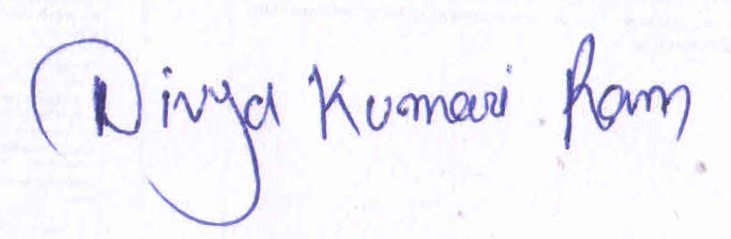 Divya Kumari Ram